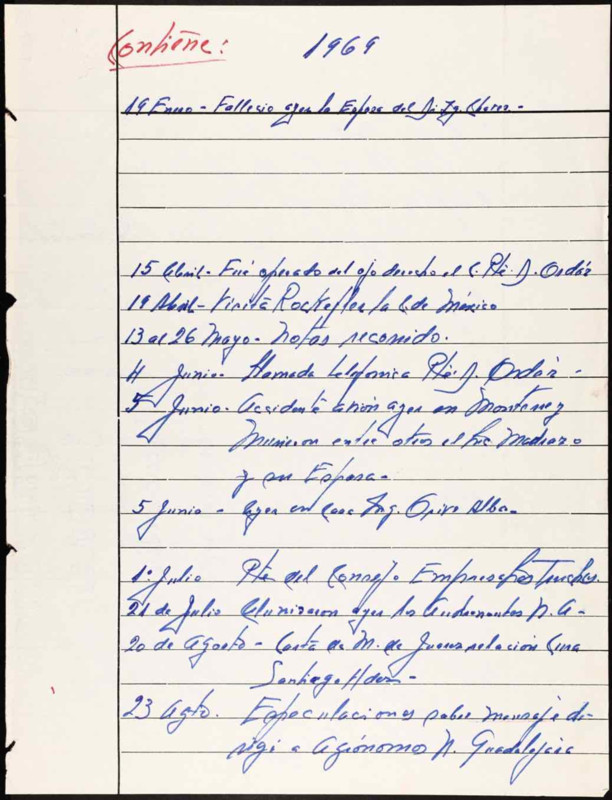 Contiene: 1969
19 Enero - Fallecio ayer la Esposa del Dr. Ig. Chavez. -
15 Abril - Fué operado del ojo derecho el C. Pte. D. Ordáz
19 Abril - Visita Rockefler la C. de México
13 al 26 Mayo - Notas recorrido.
4 Junio - Llamada telefonica Pte. D. Ordáz -
5 Junio - Accidente avión ayer en Monterrey
Murieron entre otros el Lic Madrazo
y su Esposa -
5 Junio - Ayer en casa Ing. Orive Alba -
1º Julio Pte del Consejo
21 de Julio ayer los N. A -
20 de Agosto - Carta de M. de relación
Santiago Hdez -
23 Agto. Especulaciones sobre mensaje di-
rigí a Agrónomos N. Guadalajara